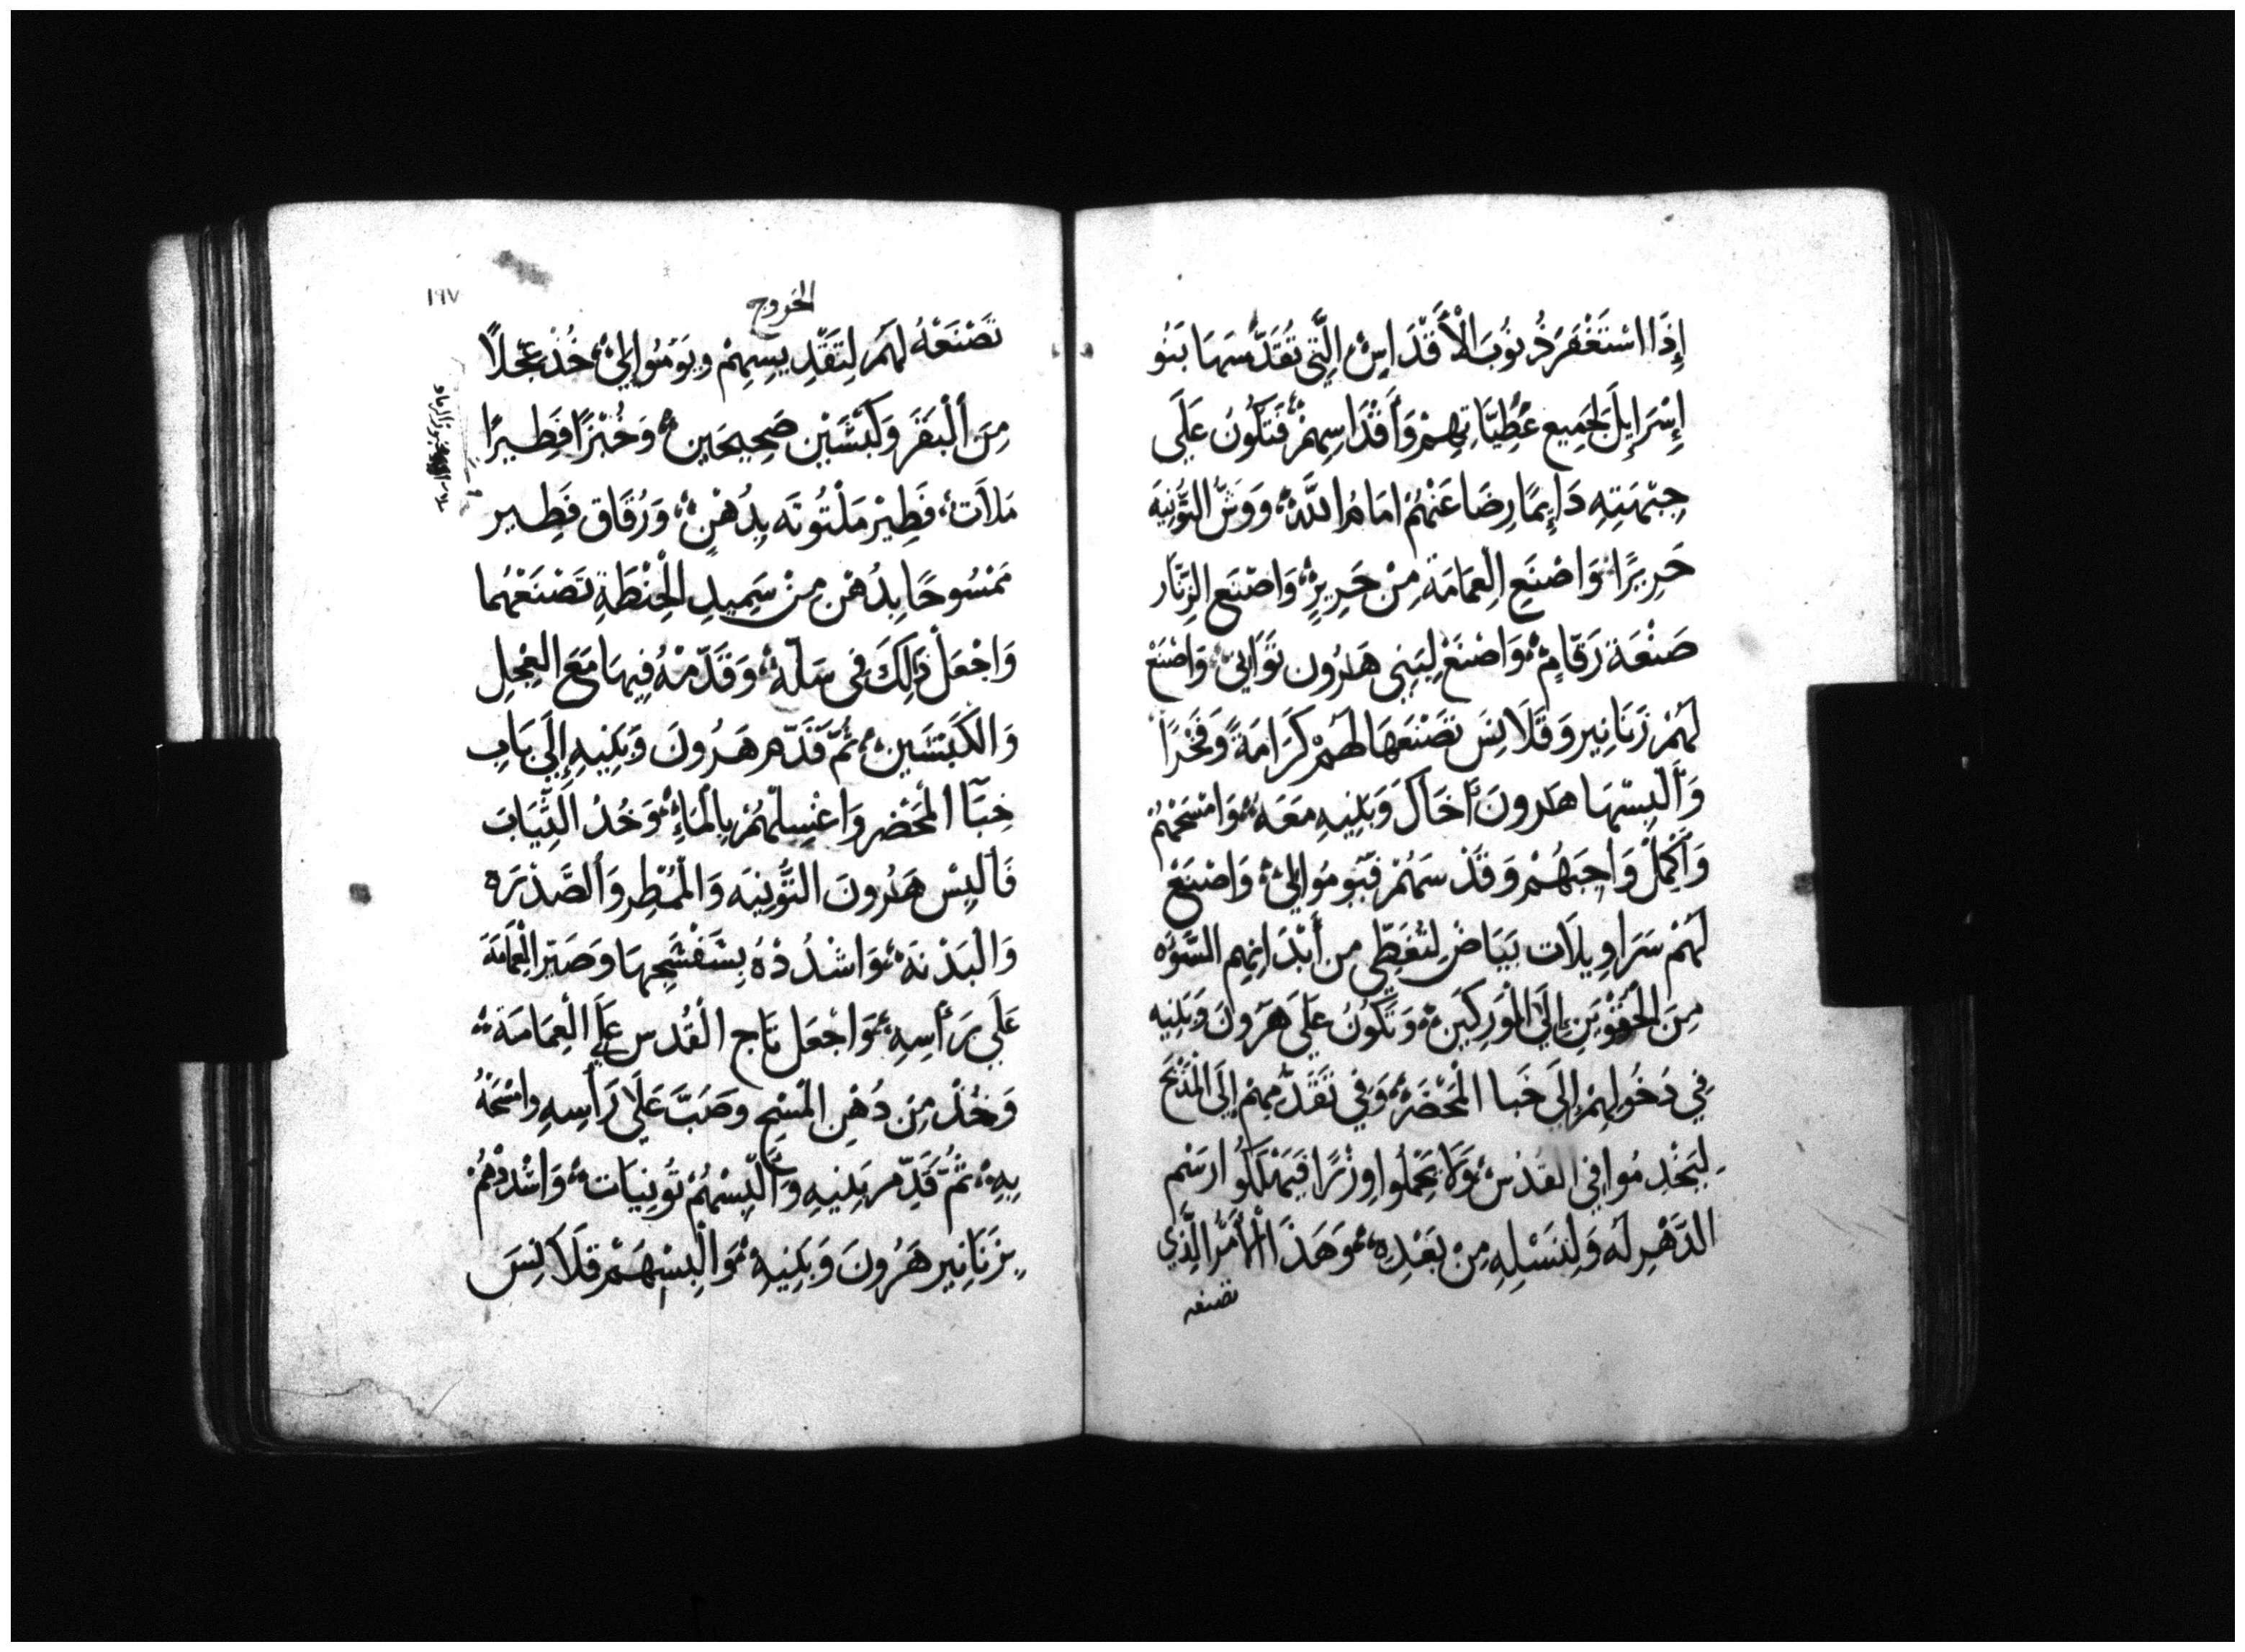 إِذَا اسْتَغْفَرَ ذُنُوبَ الْأَقْدَاسِ الَّتِي تُقَدِّسَهَا بَنُو
إِسْرَايِلَ لِجَمِيعِ عُطِيَّاتِهِمْ وَأَقْدَاسِهِمْ فَتَكُونَ عَلَى
جِبْهَتِهِ دَايِمًا رِضَا عَنْهُمْ امَامُ اللَّهِ وَوَشِّ التُّونِيَه
حَرِيرًا وَاصْنَعِ الْعِمَامَةَ مِنْ حَرِيرٍ وَاصْنَعِ الزِّنَّار
صَنْعَةَ رَقَّامٍ وَاصْنَعْ لِبَنِي هَرُون تَوَانِي وَاصْنَعْ
لَهُمْ زَنَانِير وَقَلَانِسَ تَصْنَعَهَا لَهُمْ كَرَامَةً وَفَخْرًا
وَأَلْبِسْهَا هَرونَ أَخَاكَ وَبَنِيهِ مَعَهُ وَامْسَحْهُمْ
وَأَكْمِلْ وَاجِبَهُمْ وَقَدِّسَهُمْ فَيُومُوا إِلَيَّ وَاصْنَعْ
لَهُمْ سَرَاوِيلَات بَيَاضْ لِتُغَطِّي مِن أَبْدَانِهِم السَّوْءَه
مِنَ الْحَقْوَيْنِ إِلَى الْوَرِكَيْنِ وَتَكُونُ عَلَى هَرُونَ وَبَنِيه
فِي دُخُولِهِمْ إِلَى خَبا الْمَحْضَرْ وَفِي تَقَدُّمِهِمْ إِلَى الْمَذْبَحَ
لِيَخْدِمُوا فِي القُدْسْ وَلَا يَحْمِلُوا وِزْرًا فَيَهْلَكُوا ارَسْم
الدَّهْرِ لَه وَلِنَسْلِهِ مِنْ بَعْدِهِ وَهَذَا الْأَمْرُ الَّذِي
تصنعه
الخروج
١٩٧
تَصْنَعْهُ لَهُمْ لِتَقْدِيسِهِمْ وَيَوْمُوا إِلَيَّ خُذْ عِجْلًا
مِنَ أَلْبَقَرِ وَكَبْشَيْنِ صَحِيحَيْنِ وَخُبْزًا فَطِيرًا
مَلَات فَطِيرْ مَلْتُوتَه بِدُهْنٍ وَرُقَاق فَطِير
مَمْسُوحًا بِدُهْنٍ مِنْ سَمِيدِ الْحِنْطَةِ تَصْنَعْهُمَا
وَاجْعَلْ ذَلِكَ فِي سَلَّةٍ وَقَدِّمْهُ فِيهَا مَعَ العِجْلِ
وَالكَبْشَينِ ثُمَّ قَدِّم هَرُونَ وَبَنِيهِ إِلَى بَابِ
خِبَآ الْمَحْضَرِ وَاغْسِلْهُمْ بِالْمَاءِ وَخُذُ الثِّيَابَ
فَأَلْبِسْ هَرُونَ التُّونِيَه وَالْمُمْطِر وَالصَّدْرَه
وَالْبَدْنَهَ وَاشْدُدْهُ بِشَفْشَجِهَا وَصَيِّرِ الْعِمَامَةَ
عَلَى رَأْسِهِ وَاجْعَل تَاج الْقُدْسِ عَلَى الْعِمَامَةَ
وَخُذْ مِن دُهْنِ الْمَسْحِ وصَبَّ عَلَى رَأْسِهِ وامْسَحْهُ
بِهِ ثُمَّ قَدِّم بَنِيهِ وَأَلْبِسْهُمْ تُونِيَات وَاشْدُدْهُمْ
بِزَنَانِير هَرُونَ وَبَنِيهِ وَالْبِسْهُمْ قَلَانِسَ